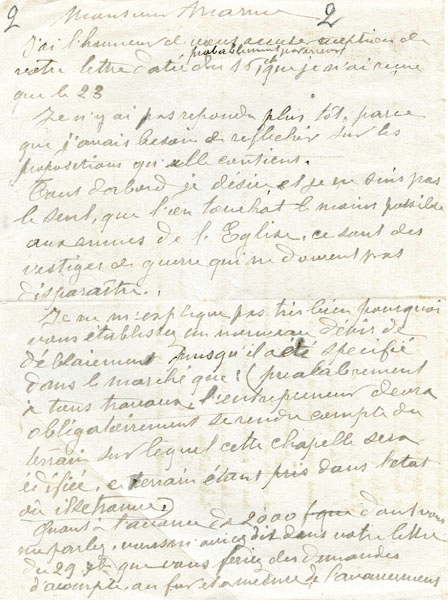 2 Monsieur Marmu 2
J'ai l'honneur de vous accuser réception de
probablement par erreur
votre lettre datée du 15, que je n'ai reçue
que le 23
Je n'y ai pas repondu plus tôt, parce
que j'avais besoin de reflechir sur les
propositions qu'elle contient.
Tout d'abord je désire, et je ne suis pas
le seul, que l'on touchat le moins possible
aux ruines de l'Eglise, ce sont des
vestiges de guerre qui ne doivent pas
disparaître.
Je ne m'explique pas très bien pourquoi
vous établissez un nouveau devis de
déblaiement puisqu'il a été spécifié
dans le marché que : (préalablement
à tous travaux, l'entrepreneur devra
obligatoirement se rendre compte du
terrain sur lequel cette chapelle sera
édifiée, ce terrain étant pris dans l'état
où il se trouve)
Quant à l'avance de 2000 f que dont vous
me parlez, vous m'aviez dit dans votre lettre
du 29 que vous feriez des demandes
d'acompte, au fur et a mesure de l'avancement